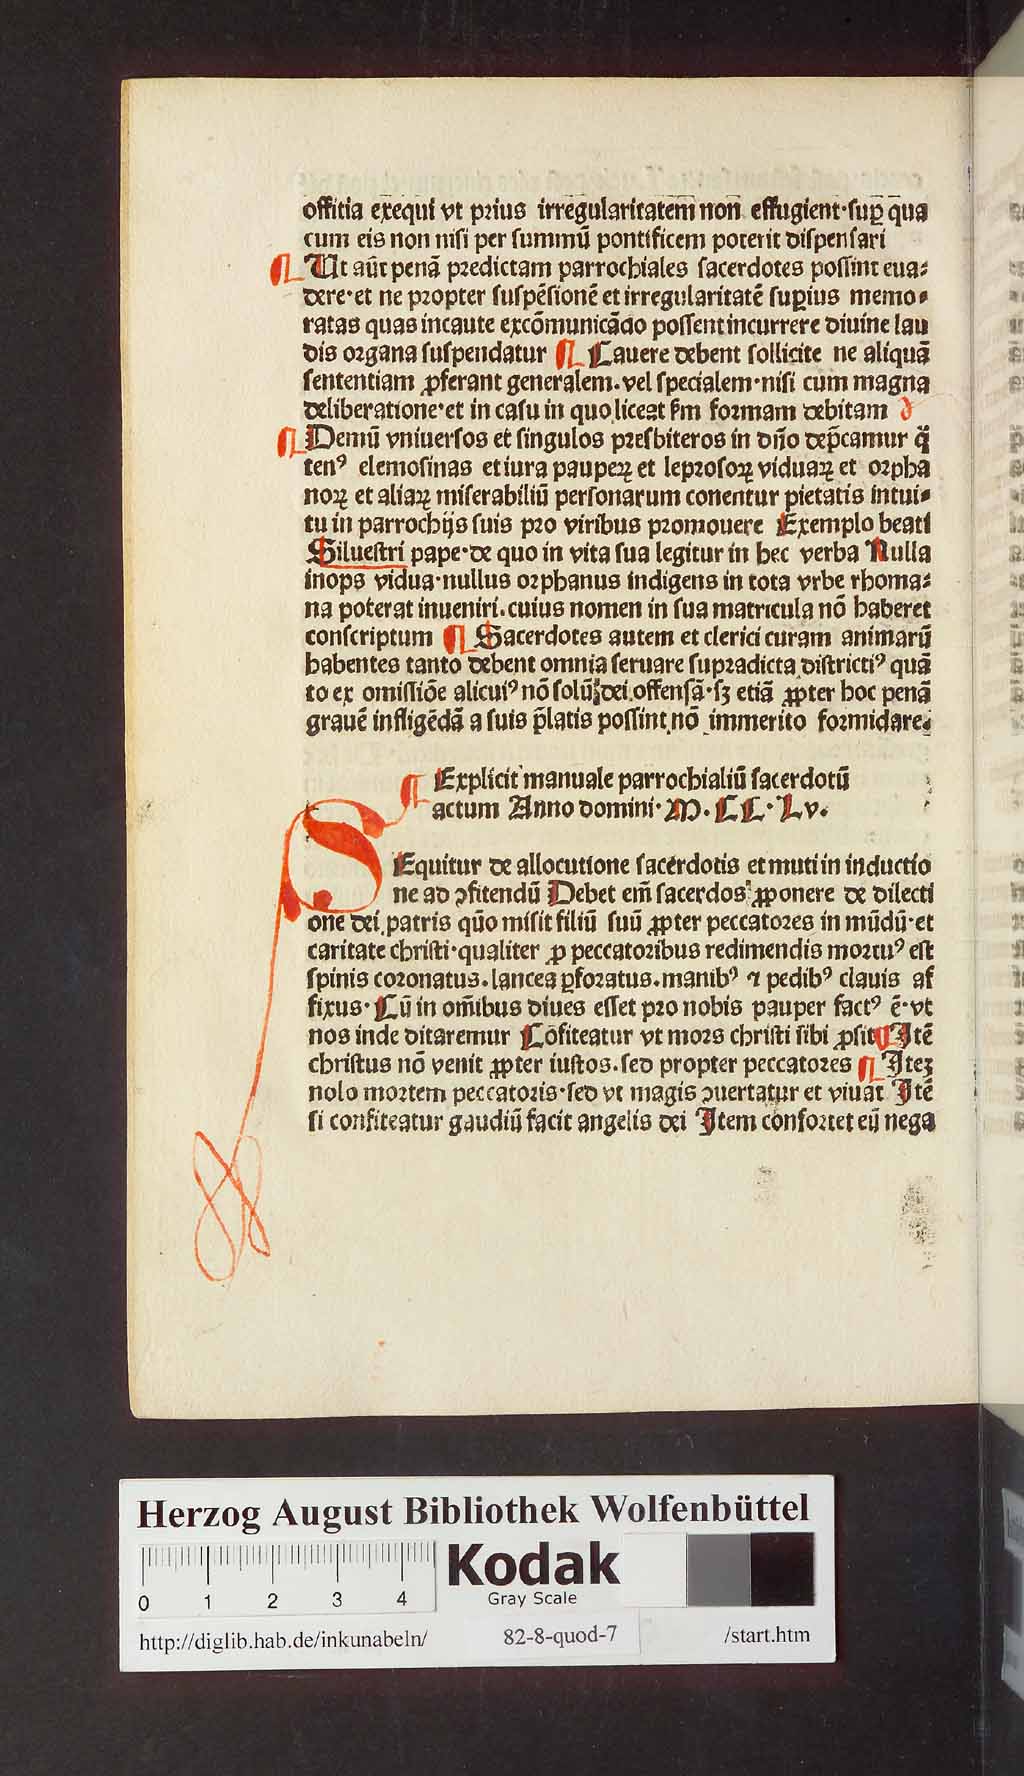 offitia exequi vt prius irregularitatem non effugient·suꝑ qua
cum eis non nisi per summū pontificem poterit dispensari
¶ Ut aūt penā predictam parrochiales sacerdotes possint eua⸗
dere·et ne propter suspēsionē et irregularitatē suꝑius memo⸗
ratas quas incaute excōmunicādo possent incurrere diuine lau
dis organa suspendatur ¶ Cauere debent sollicite ne aliquā
sententiam ꝓferant generalem.vel specialem·nisi cum magna
deliberatione·et in casu in quo liceat ẜm formam debitam
¶ Demū vniuersos et singulos presbiteros in dño dep̄camur q̄
tenꝰ elemosinas et iura pauperꝝ et leprosoꝝ viduaꝝ et orpha
noꝝ et aliaꝝ miserabiliū personarum conentur pietatis intui⸗
tu in parrochijs suis pro viribus promouere Exemplo beati
Siluestri pape·de quo in vita sua legitur in hec verba Nulla
inops vidua·nullus orphanus indigens in tota vrbe rhoma⸗
na poterat inueniri.cuius nomen in sua matricula nō haberet
conscriptum ¶ Sacerdotes autem et clerici curam animarū
habentes tanto debent omnia seruare supradicta districtiꝰ quā
to ex omissiōe alicuiꝰ nō solū dei offensā·sꝫ etiā ꝓpter hoc penā
grauē infligēdā a suis p̄latis possint nō immerito formidare.
¶ Explicit manuale parrochialiū sacerdotū
actum Anno domini·M.CC·Lv.
SEquitur de allocutione sacerdotis et muti in inductio
ne ad ↄfitendū Debet em̄ sacerdos ꝓponere de dilecti
one dei patris quō misit filiū suū ꝓpter peccatores in mūdū·et
caritate christi·qualiter ꝓ peccatoribus redimendis mortuꝰ est
spinis coronatus.lancea ꝑforatus.manibꝰ ⁊ pedibꝰ clauis af
fixus·Cū in om̄ibus diues esset pro nobis pauper factꝰ ē·vt
nos inde ditaremur Cōfiteatur vt mors christi sibi ꝓsit ¶ Itē
christus nō venit ꝓpter iustos.sed propter peccatores ¶ Iteꝫ
nolo mortem peccatoris·sed vt magis ↄuertatur et viuat Itē
si confiteatur gaudiū facit angelis dei Item confortet eū nega
Herzog August Bibliothek Wolfenbüttel
0 1 2 3 4
Kodak
Gray Scale
http://diglib.hab.de/inkunabeln/ 82-8-quod-7 /start.htm